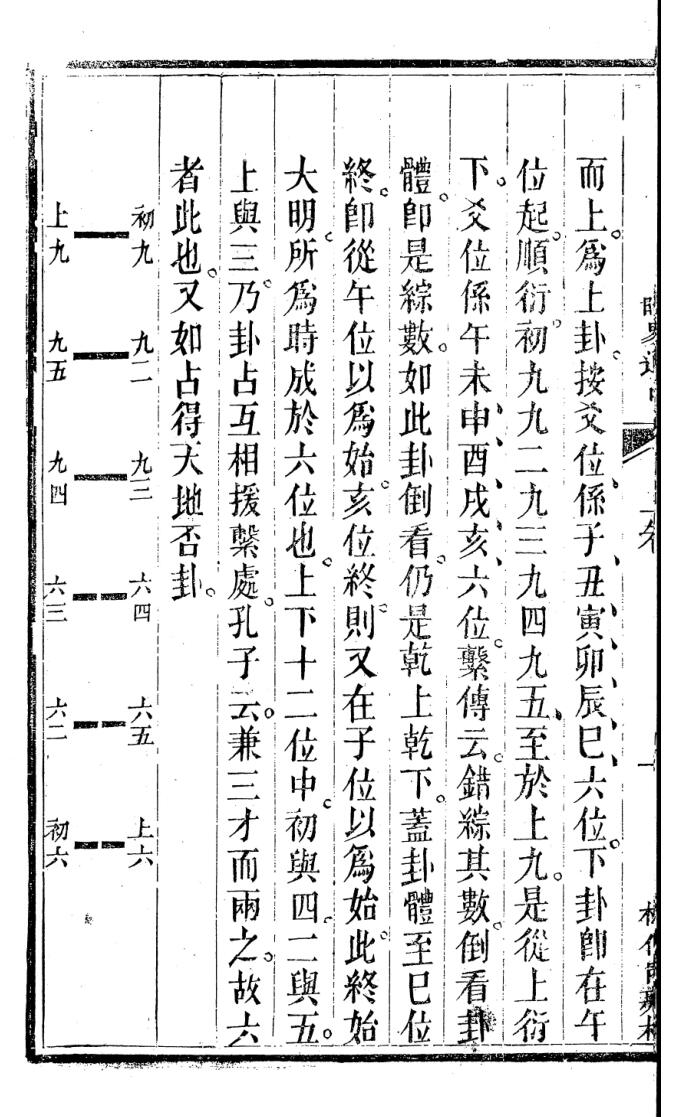 而上。爲上卦。按爻位。係子、丑、寅、卯、辰、巳、六位。下卦卽在午
位起。順衍初九。九二九三九四九五、至於上九。是從上衍
下。爻位係午未申、酉、戌、亥、六位。繫傳云。錯綜其數。倒看卦
體。卽是綜數。如此卦倒看。仍是乾上乾下。蓋卦體至巳位
終。卽從午位以爲始。亥位終。則又在子位以爲始。此終始
大明。所爲時成於六位也。上下十二位中。初與四。二與五。
上與三。乃卦占互相援繫處。孔子云。兼三才而兩之。故六
者此也。又如占得天地否卦。
初九 九二 九三 六四 六五 上六
上九 九五 九四 六三 六二 初六